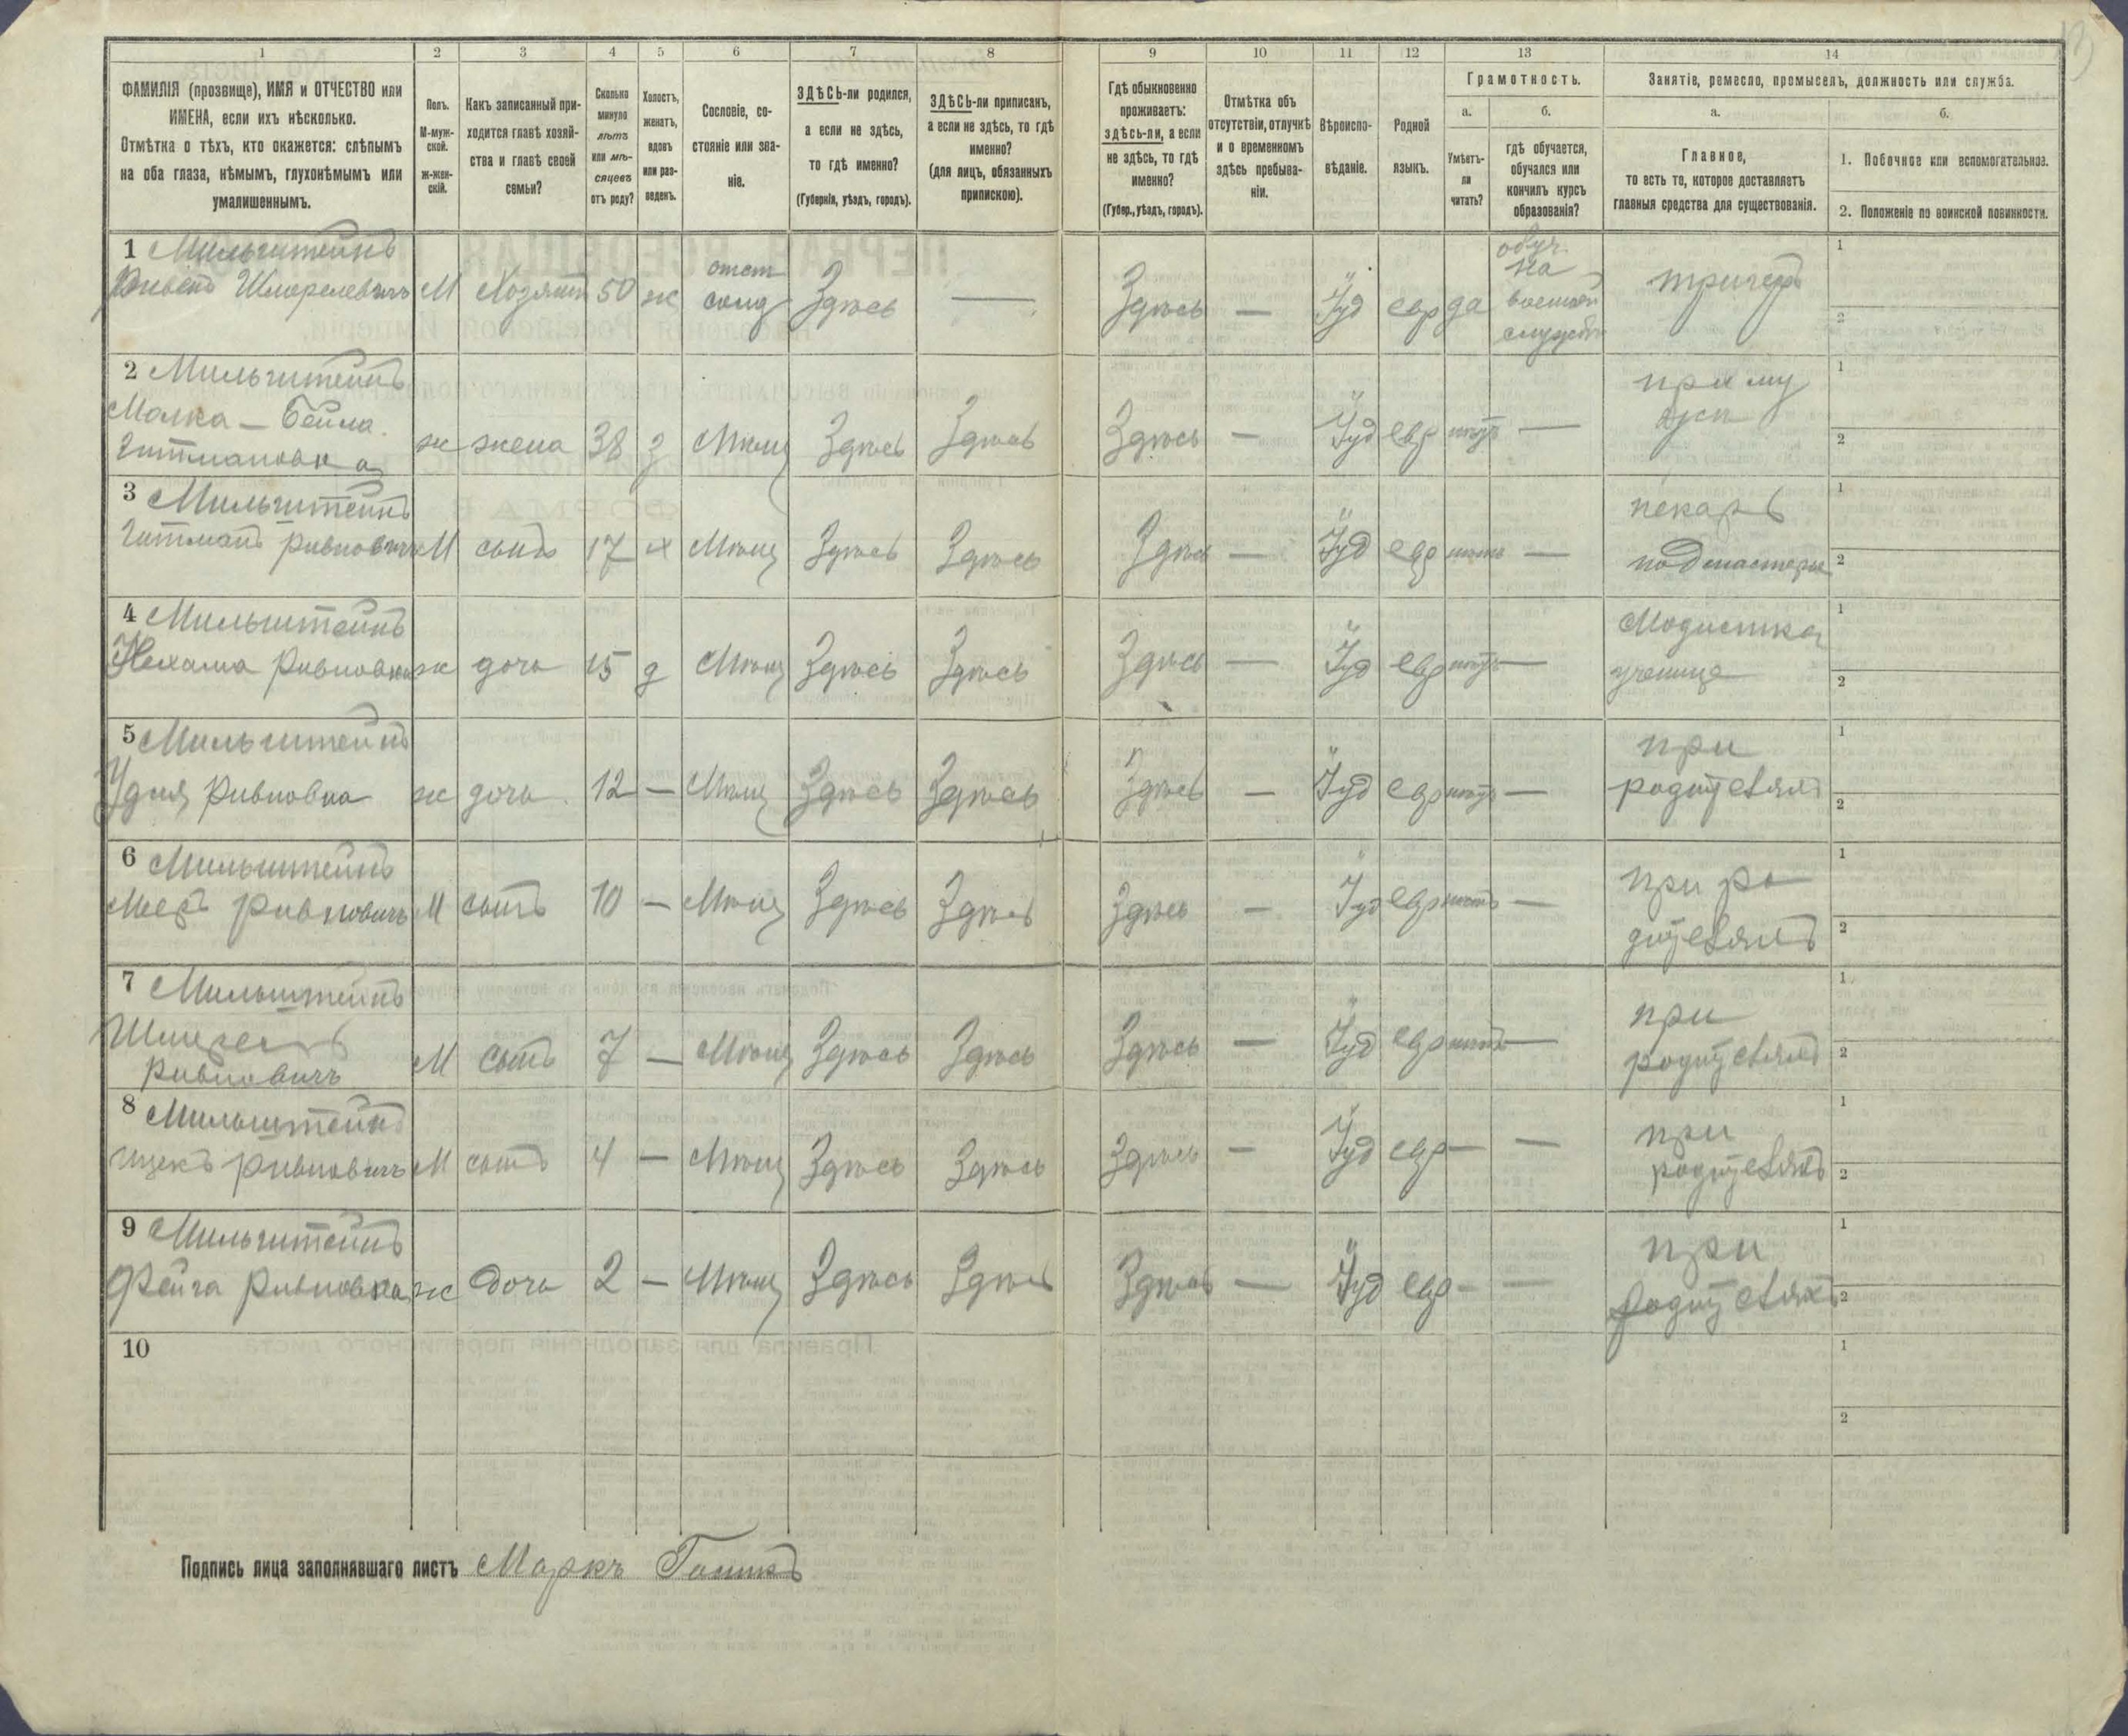 1 2 3 4 5 6 7 8 9 10 11 12 13 14
ФАМИЛІЯ (прозвище), ИМЯ и ОТЧЕСТВО или
ИМЕНА, если ихъ нѣсколько.
Отмѣтка о тѣхъ, кто окажется: слѣпымъ
на оба глаза, нѣмымъ, глухонѣмымъ или
умалишеннымъ.
Полъ.
М-муж-
ской.
ж-жен-
скій.
Какъ записанный при-
ходится главѣ хозяй-
ства и главѣ своей
семьи?
Сколько
минуло
лѣтъ
или мѣ-
сяцевъ
отъ роду?
Холостъ,
женатъ,
вдовъ
или раз-
веденъ.
Сословіе, со-
стояніе или зва-
ніе.
ЗДѢСЬ-ли родился,
а если не здѣсь,
то гдѣ именно?
(Губернія, уѣздъ, городъ).
ЗДѢСЬ-ли приписанъ,
а если не здѣсь, то гдѣ
именно?
(для лицъ, обязанныхъ
припискою).
Гдѣ обыкновенно
проживаетъ:
здѣсь-ли, а если
не здѣсь, то гдѣ
именно?
(Губер., уѣздъ, городъ).
Отмѣтка объ
отсутствіи, отлучкѣ
и о временномъ
здѣсь пребыва-
ніи.
Вѣроиспо-
вѣданіе.
Родной
языкъ.
Грамотность.
а.
Умѣетъ-
ли
читать?
б.
гдѣ обучается,
обучался или
кончилъ курсъ
образованія?
Занятіе, ремесло, промыселъ, должность или служба.
а.
Главное,
то есть то, которое доставляетъ
главныя средства для существованія.
б.
1. Побочное или вспомогательное.
2. Положеніе по воинской повинности.
1 Мильштейнъ
Шмерелевичъ М Хозяинъ 50 ж
отст
солд
Здѣсь — Здѣсь — Іуд евр да
обуч.
на
военной
службѣ
1
2
2 Мильштейнъ
Малка — Бейла
Гитмановна ж жена 38 з Мѣщ Здѣсь Здѣсь Здѣсь — Іуд евр нѣтъ —
при му
1
2
3 Мильштейнъ
Гитманъ Ривновичъ М сынъ 17 х Мѣщ Здѣсь Здѣсь Здѣсь — Іуд евр нѣтъ —
пекарь
подмастерье
1
2
4 Мильштейнъ
Нехама Ривновна ж дочь 15 д Мѣщ Здѣсь Здѣсь Здѣсь — Іуд евр нѣтъ —
Модистка
ученица
1
2
5 Мильштейнъ
Удля Ривновна ж дочь 12 — Мѣщ Здѣсь Здѣсь Здѣсь — Іуд евр нѣтъ —
при
родителяхъ
1
2
6 Мильштейнъ
Мееръ Ривновичъ М сынъ 10 — Мѣщ Здѣсь Здѣсь Здѣсь — Іуд евр нѣтъ —
при ро
дителяхъ
1
2
7 Мильштейнъ
Ривновичъ М сынъ 7 — Мѣщ Здѣсь Здѣсь Здѣсь — Іуд евр нѣтъ —
при
родителяхъ
1
2
8 Мильштейнъ
Ицекъ Ривновичъ М сынъ 4 — Мѣщ Здѣсь Здѣсь Здѣсь — Іуд евр — —
при
родителяхъ
1
2
9 Мильштейнъ
Фейга Ривновна ж дочь 2 — Мѣщ Здѣсь Здѣсь Здѣсь — Іуд евр — —
при
родителяхъ
1
2
10
1
2
Подпись лица заполнявшаго листъ Маркъ